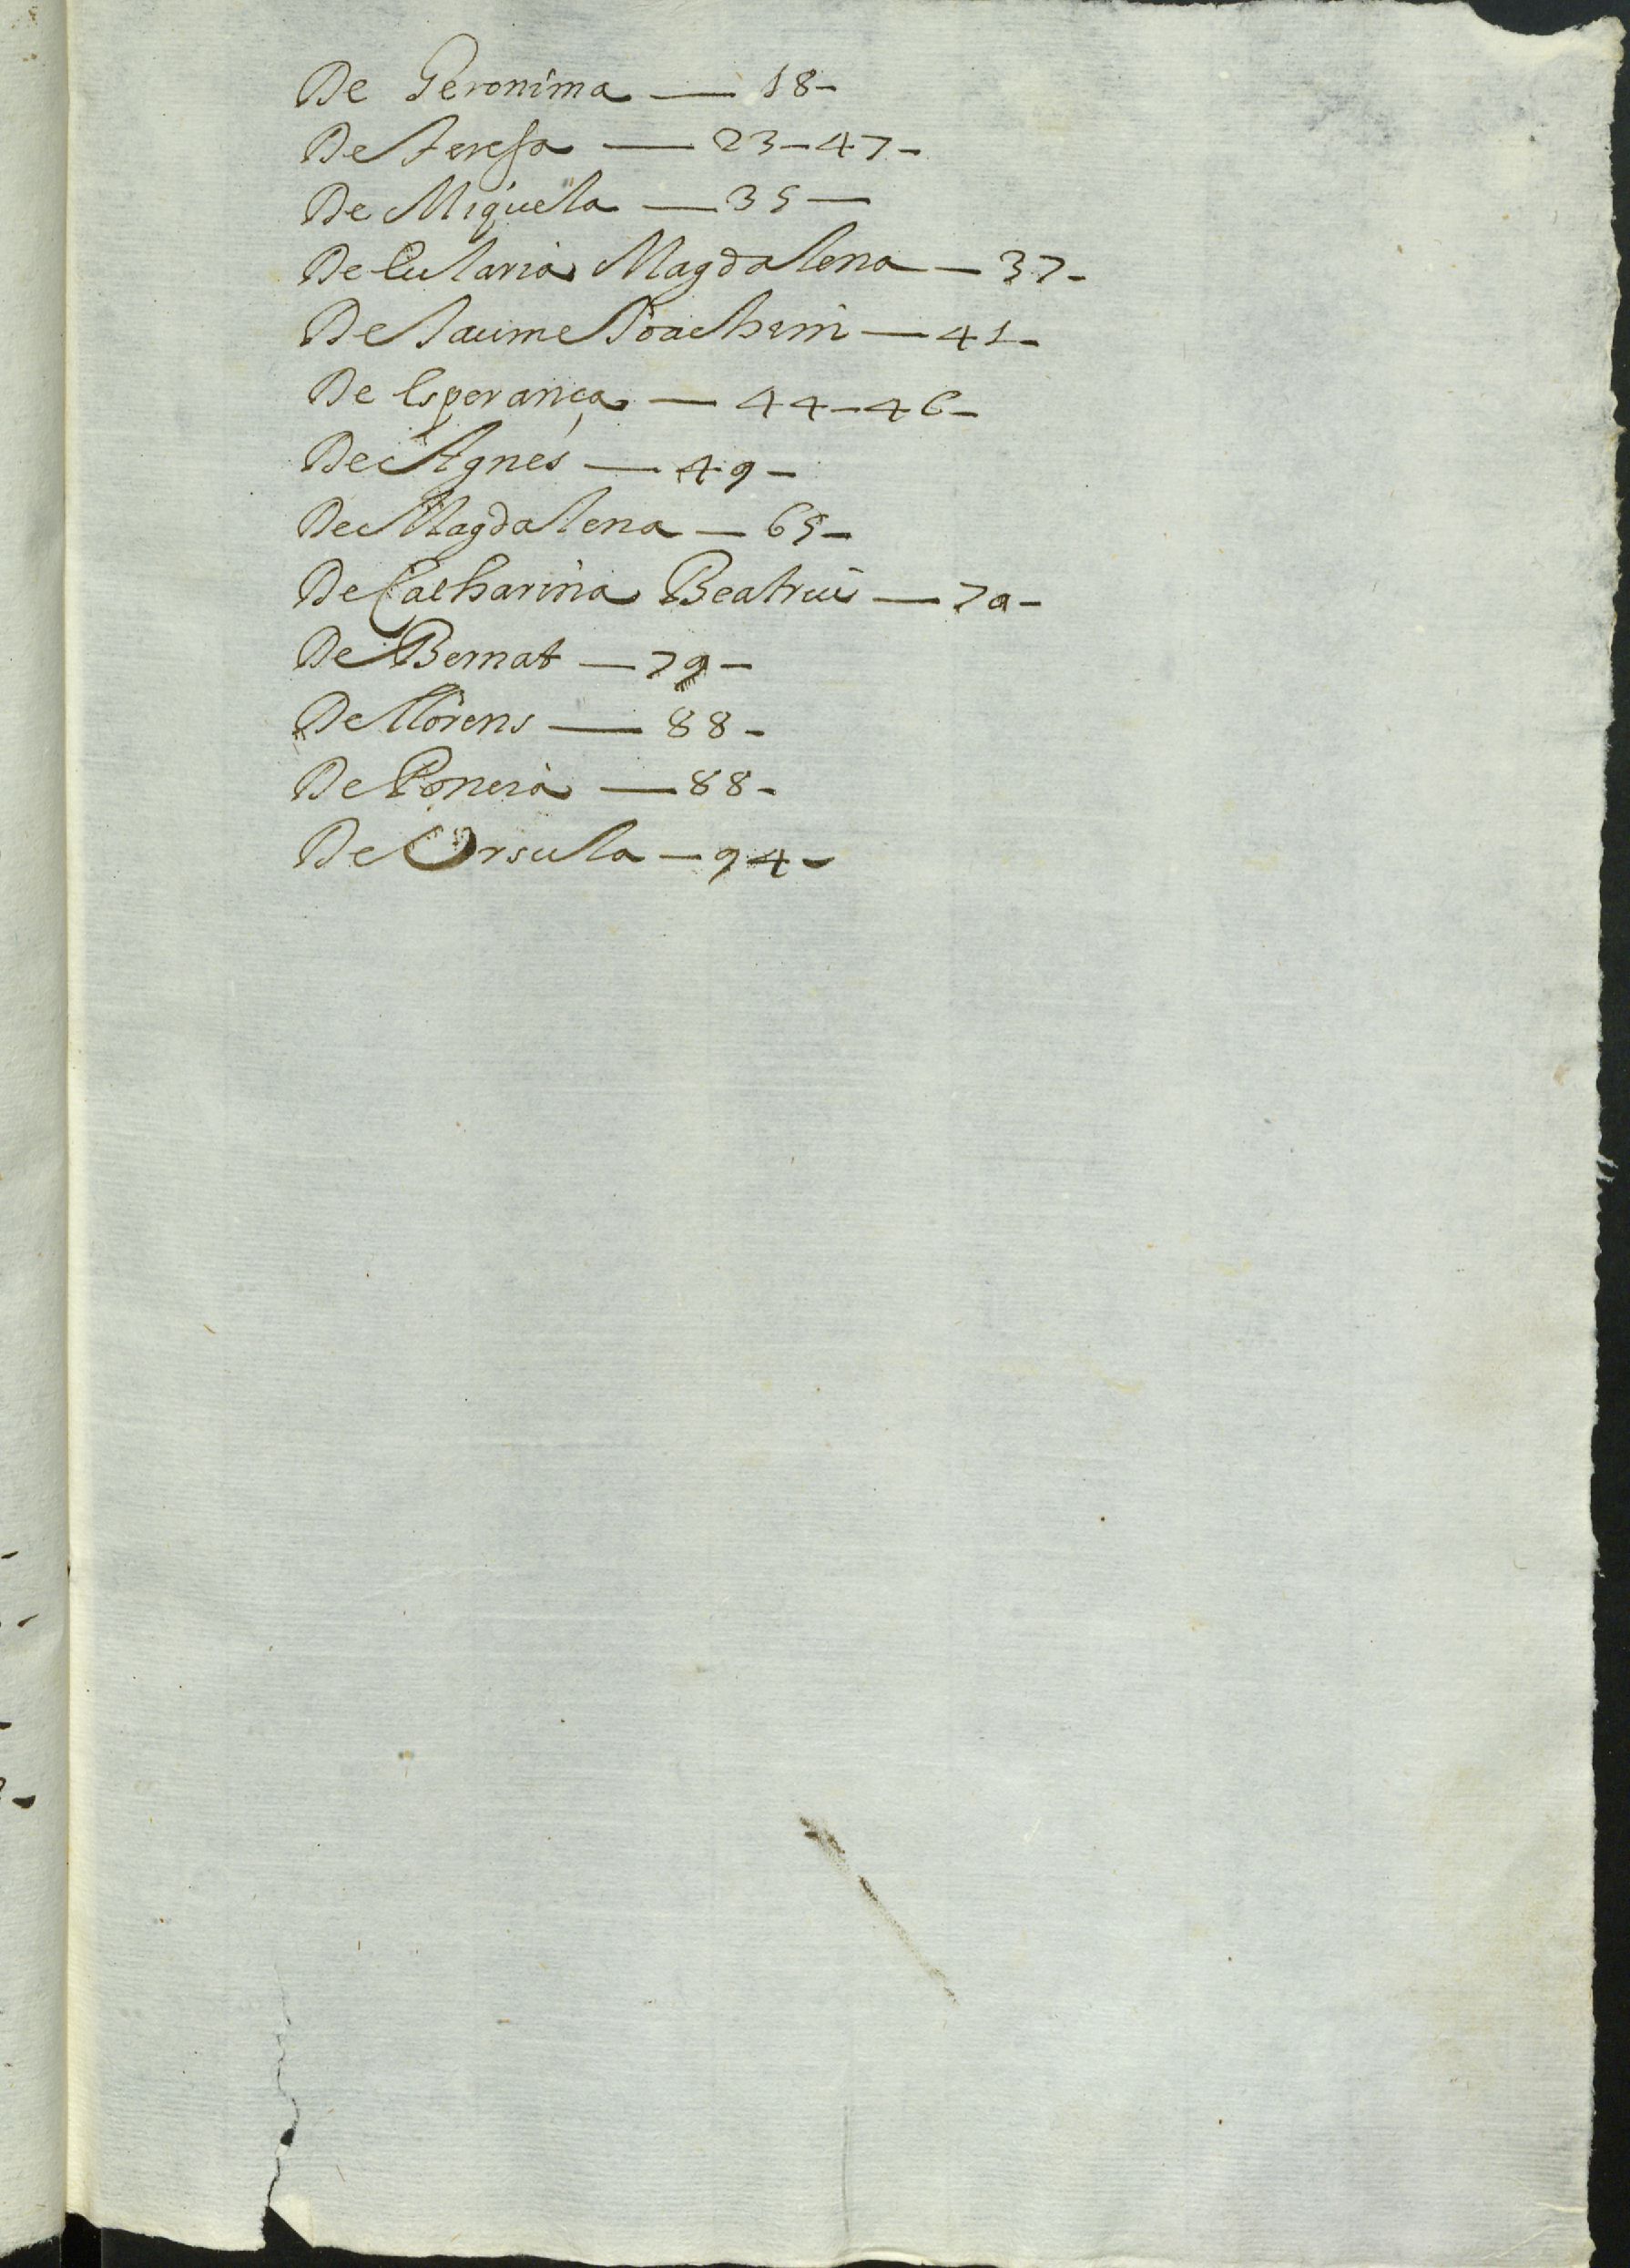 De Geronima — 18-
De Teresa — 23-47-
De Miquela — 35 —
De Eularia Magdalena — 37-
De Jaume Joachim — 41-
De Esperança — 44-46-
De Agnes — 49-
De Magdalena — 65-
De Catharina Beatriu — 70-
De Bernat — 79-
De Llorens — 88-
De — 88-
De Orsula — 94-